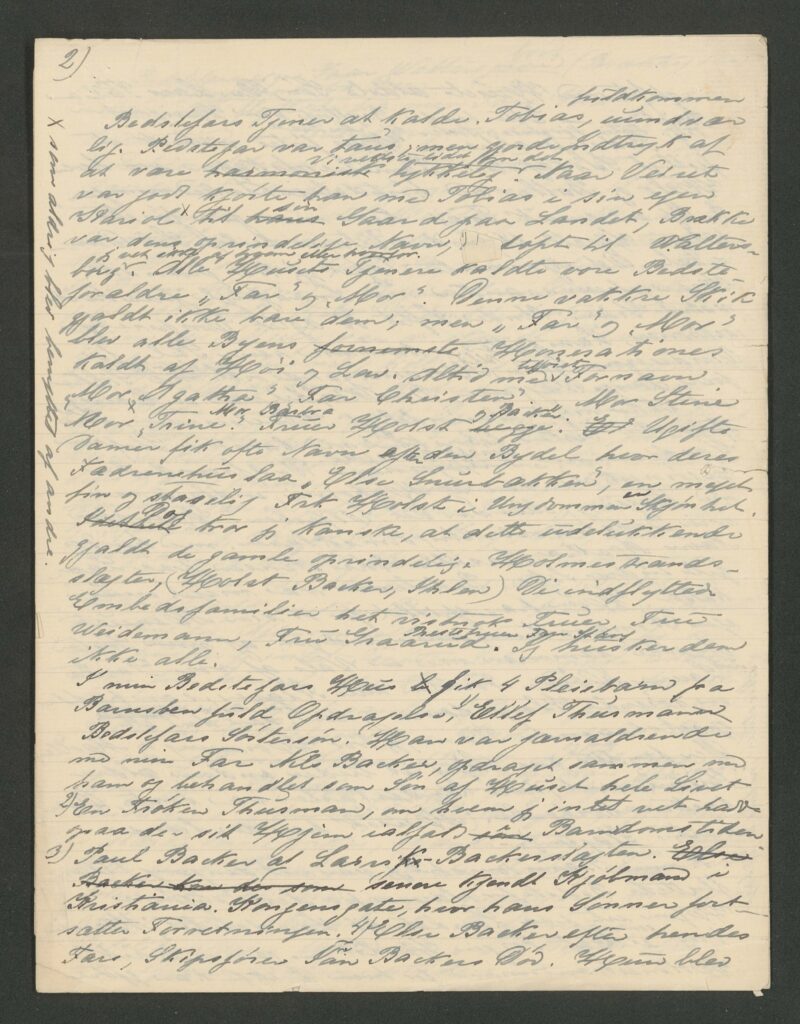 2)
fuldkommen
Bedstefars Tjener at kalde. Tobias, uundvær
lig. Bedstefar var taus, men gjorde Indtryk af
at være harmonisk lykkelig. Naar Veiret
var godt kjørte han med Tobias i sin egen
Kariol x til hans sin Gaard paa Landet, Brække
var dens oprindelige Navn, døpt til Walters-
borg. Jeg vet ikke af hvem eller hvorfor. Alle Husets Tjenere kaldte vore Bedste
forældre „Far" og „Mor". Denne vakkre Skik
gjaldt ikke bare dem, men „Far" og „Mor"
blev alle Byens fornemste Honorationes
kaldt af Høi og Lav. Altid med Fornavn
„Mor Agatha" „Far Christen". Mor Stine
„Mor Trine". Mor Barbra Fruer Holst og Backer begge. Ugifte
Damer fik ofte Navn efter den Bydel hvor deres
Fædrenehus laa „Else Snurbakken", en meget
fin og staselig Frk Holst i Ungdommen en Skjønhet.
Dog tror jeg kanske, at dette udelukkende
gjaldt de gamle oprindelige Holmestrands-
slægter, (Holst Backer, Ihlen) De indflyttede
Embedsfamilier het vistnok Fruer, Fru
Weidemann, Fru Graarud. Jeg husker dem
ikke alle.
I min Bedstefars Hus fik 4 Pleiebarn fra
Barnsben fuld Opdragelse, 1) Ellef Thusmann
Bedstefars Søstersøn. Han var jevnaldrende
med min Far Nils Backer, opdraget sammen med
ham og behandlet som Søn af Huset hele Livet
2) En Frøken Thusman, om hvem jeg intet vet hadde
ogsaa der sit Hjem ialfald sin Barndomstiden.
3) Paul Backer af Larvik-Backerslægten. Else
Backer kan der som senere kjendt Kjøbmand i
Kristiania. Kongensgate, hvor hans Sønner fort-
sætter Forretningen. 4) Else Backer efter hendes
Fars, Skipsfører Backers Død. Hun blev
x som aldrig blev benyttet af andre.